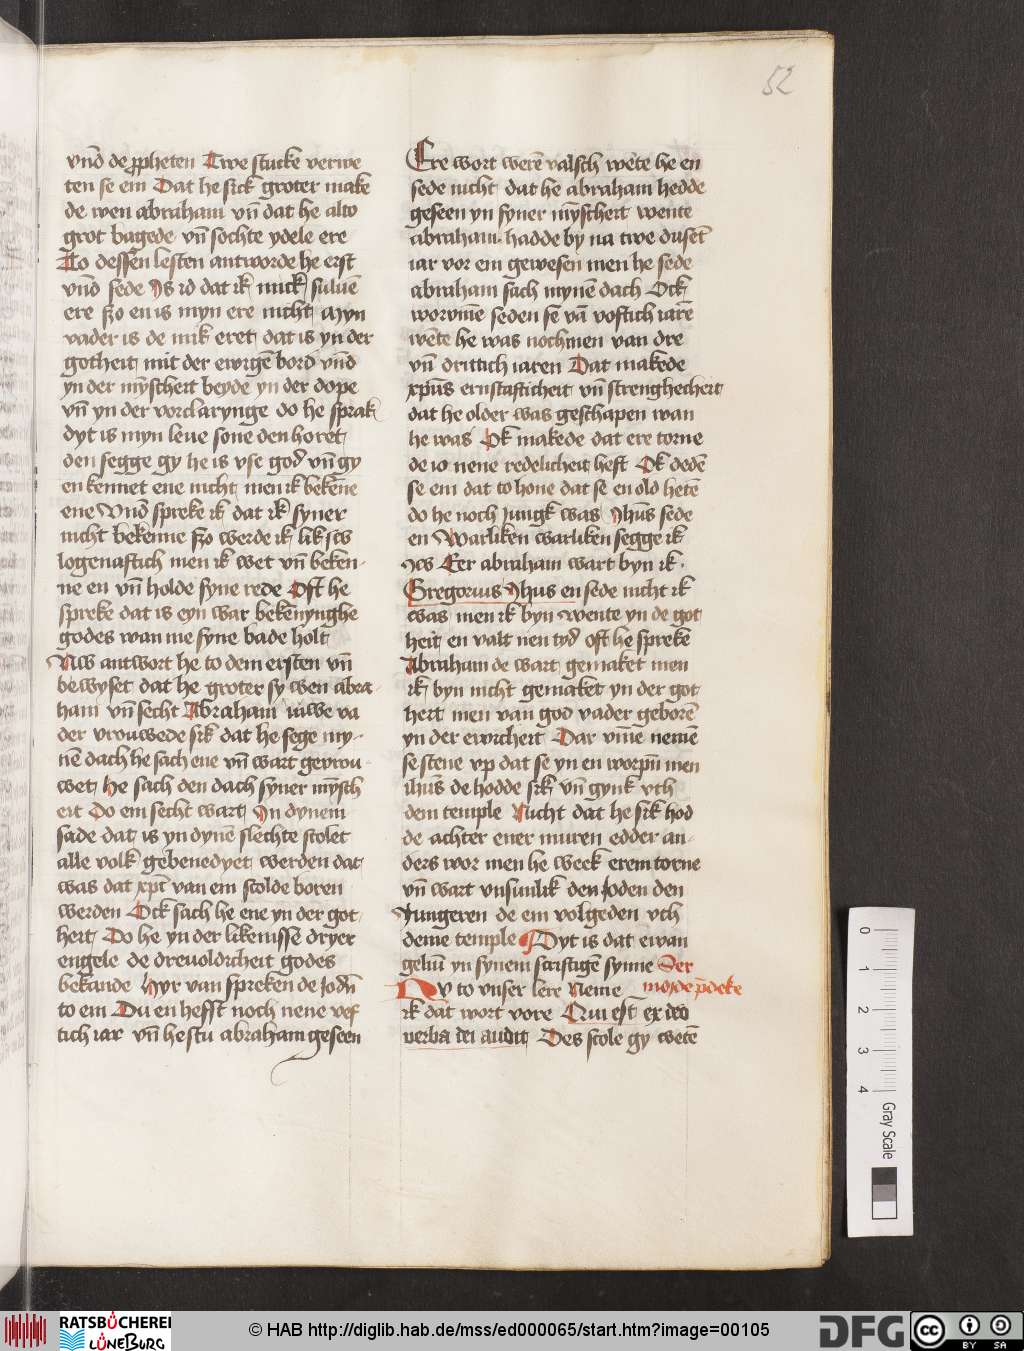 52
vnd de ꝓpheten Twe stucke verwe
ten se em Dat he sick groter make
de wen abraham vn̄ dat he alto
grot bagede vn̄ sochte ydele ere
To dessen lesten antworde he erst
vnd sede Is id dat ik mick suluē
ere szo en is myn ere nicht Myn
vader is de mik eret dat is yn der
gotheit mit der ewigē bord vnd
yn der mȳscheit beyde yn der dope
vn̄ yn der vorclarynge do he sprak
dyt is myn leue sone den horet
den segge gy he is vse god vn̄ gy
en kennet ene nicht men ik bekēne
ene Vnd spreke ik dat ik syner
nicht bekenne szo werde ik lik iw
logenaftich men ik wet vn̄ beken-
ne en vn̄ holde syne rede Oft he
spreke dat is eyn war bekēnynghe
godes wan me syne bade holt
Nw antwort he to dem ersten vn̄
bewyset dat he groter sy wen abra-
ham vn̄ secht Abraham iuwe va
der vrouwede sik dat he sege my-
nē dach he sach ene vn̄ wart gevrou-
wet He sach den dach syner mȳsch
eit Do em secht wart In dynem
sade dat is yn dynē slechte scolet
alle volk gebenedyet werden dat
was dat xp̄t van em scolde boren
werden Ock sach he ene yn der got-
heit Do he yn der likenisse dryer
engele de drevoldicheit godes
bekande Hyr van spreken de Jodn̄
to em Du en hefst noch nene vef
tich iar vn̄ hestu abraham geseen
Ere wort werē valsch wēte he en
sede nicht dat he abraham hedde
geseen yn syner mȳscheit wente
abraham hadde by na twe dusēt
iar vor em gewesen men he sede
abraham sach mynē dach Ock
worvm̄e seden se vā voftich iarē
wēte he was noch men van dre
vn̄ drittich iaren Dat makede
xpūs ernstafticheit vn̄ strengheheit
dat he older was geschapen wan
he was Ok makede dat ere torne
de io nene redelicheit heft Ok dedē
se em dat to hone dat se en old hetē
do he noch jungk was Jhūs sede
en Warliken warliken segge ik
iw Eer abraham wart byn ik
Gregorius Jhus en sede nicht ik
was men ik byn wente yn de got
heit en valt nen tyd oft he sprekē
Abraham de wart gemaket men
ik byn nicht gemaket yn der got
heit men van god vader geborē
yn der ewicheit Dar vm̄e nemē
se stene vp dat se yn en worpn̄ men
ihūs de hodde sik vn̄ gynk vth
dem temple Nicht dat he sik hod
de achter ener muren edder an-
ders wor men he week erem torne
vn̄ wart vnsunlik den Joden den
Jungeren de em volgeden vth
deme temple ¶ Dyt is dat ewan
geliū yn synem scriftigē synne Der
Nv to vnser lere Neme moide p̄deke
ik dat wort vore Qui est ex deo
verba dei audit Des scole gy wetē
0
1
2
3
4
Gray Scale
RATSBÜCHEREI
LÜNEBURG
© HAB http://diglib.hab.de/mss/ed000065/start.htm?image=00105
DFG
cc
BY SA